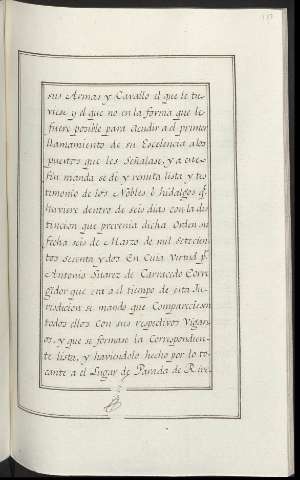 sus Armas y Cavallo el que le tu-
viese y el que no en la forma que le
fuere posible para acudir a el primer
llamamiento de su Escelencia a los
puertos que les Señalase, y a este
fin manda se dé y remita lista y tes
timonio de los Nobles é hidalgos q.^e
haviere dentro de seis dias con la dis
tincion que prevenia dicha Orden su
fecha seis de Marzo de mil setecien
tos sesenta y dos. En Cuia Virtud p.^r
Antonio Suarez de Carracedo Corre
gidor que era a el tiempo de esta Ju-
risdicion se mando que Compareciesen
todos ellos Con sus respectivos Vigari-
os, y que se formase la Correspondien-
te lista, y haviendolo hecho por lo to-
cante a el Lugar de Parada de Rive-